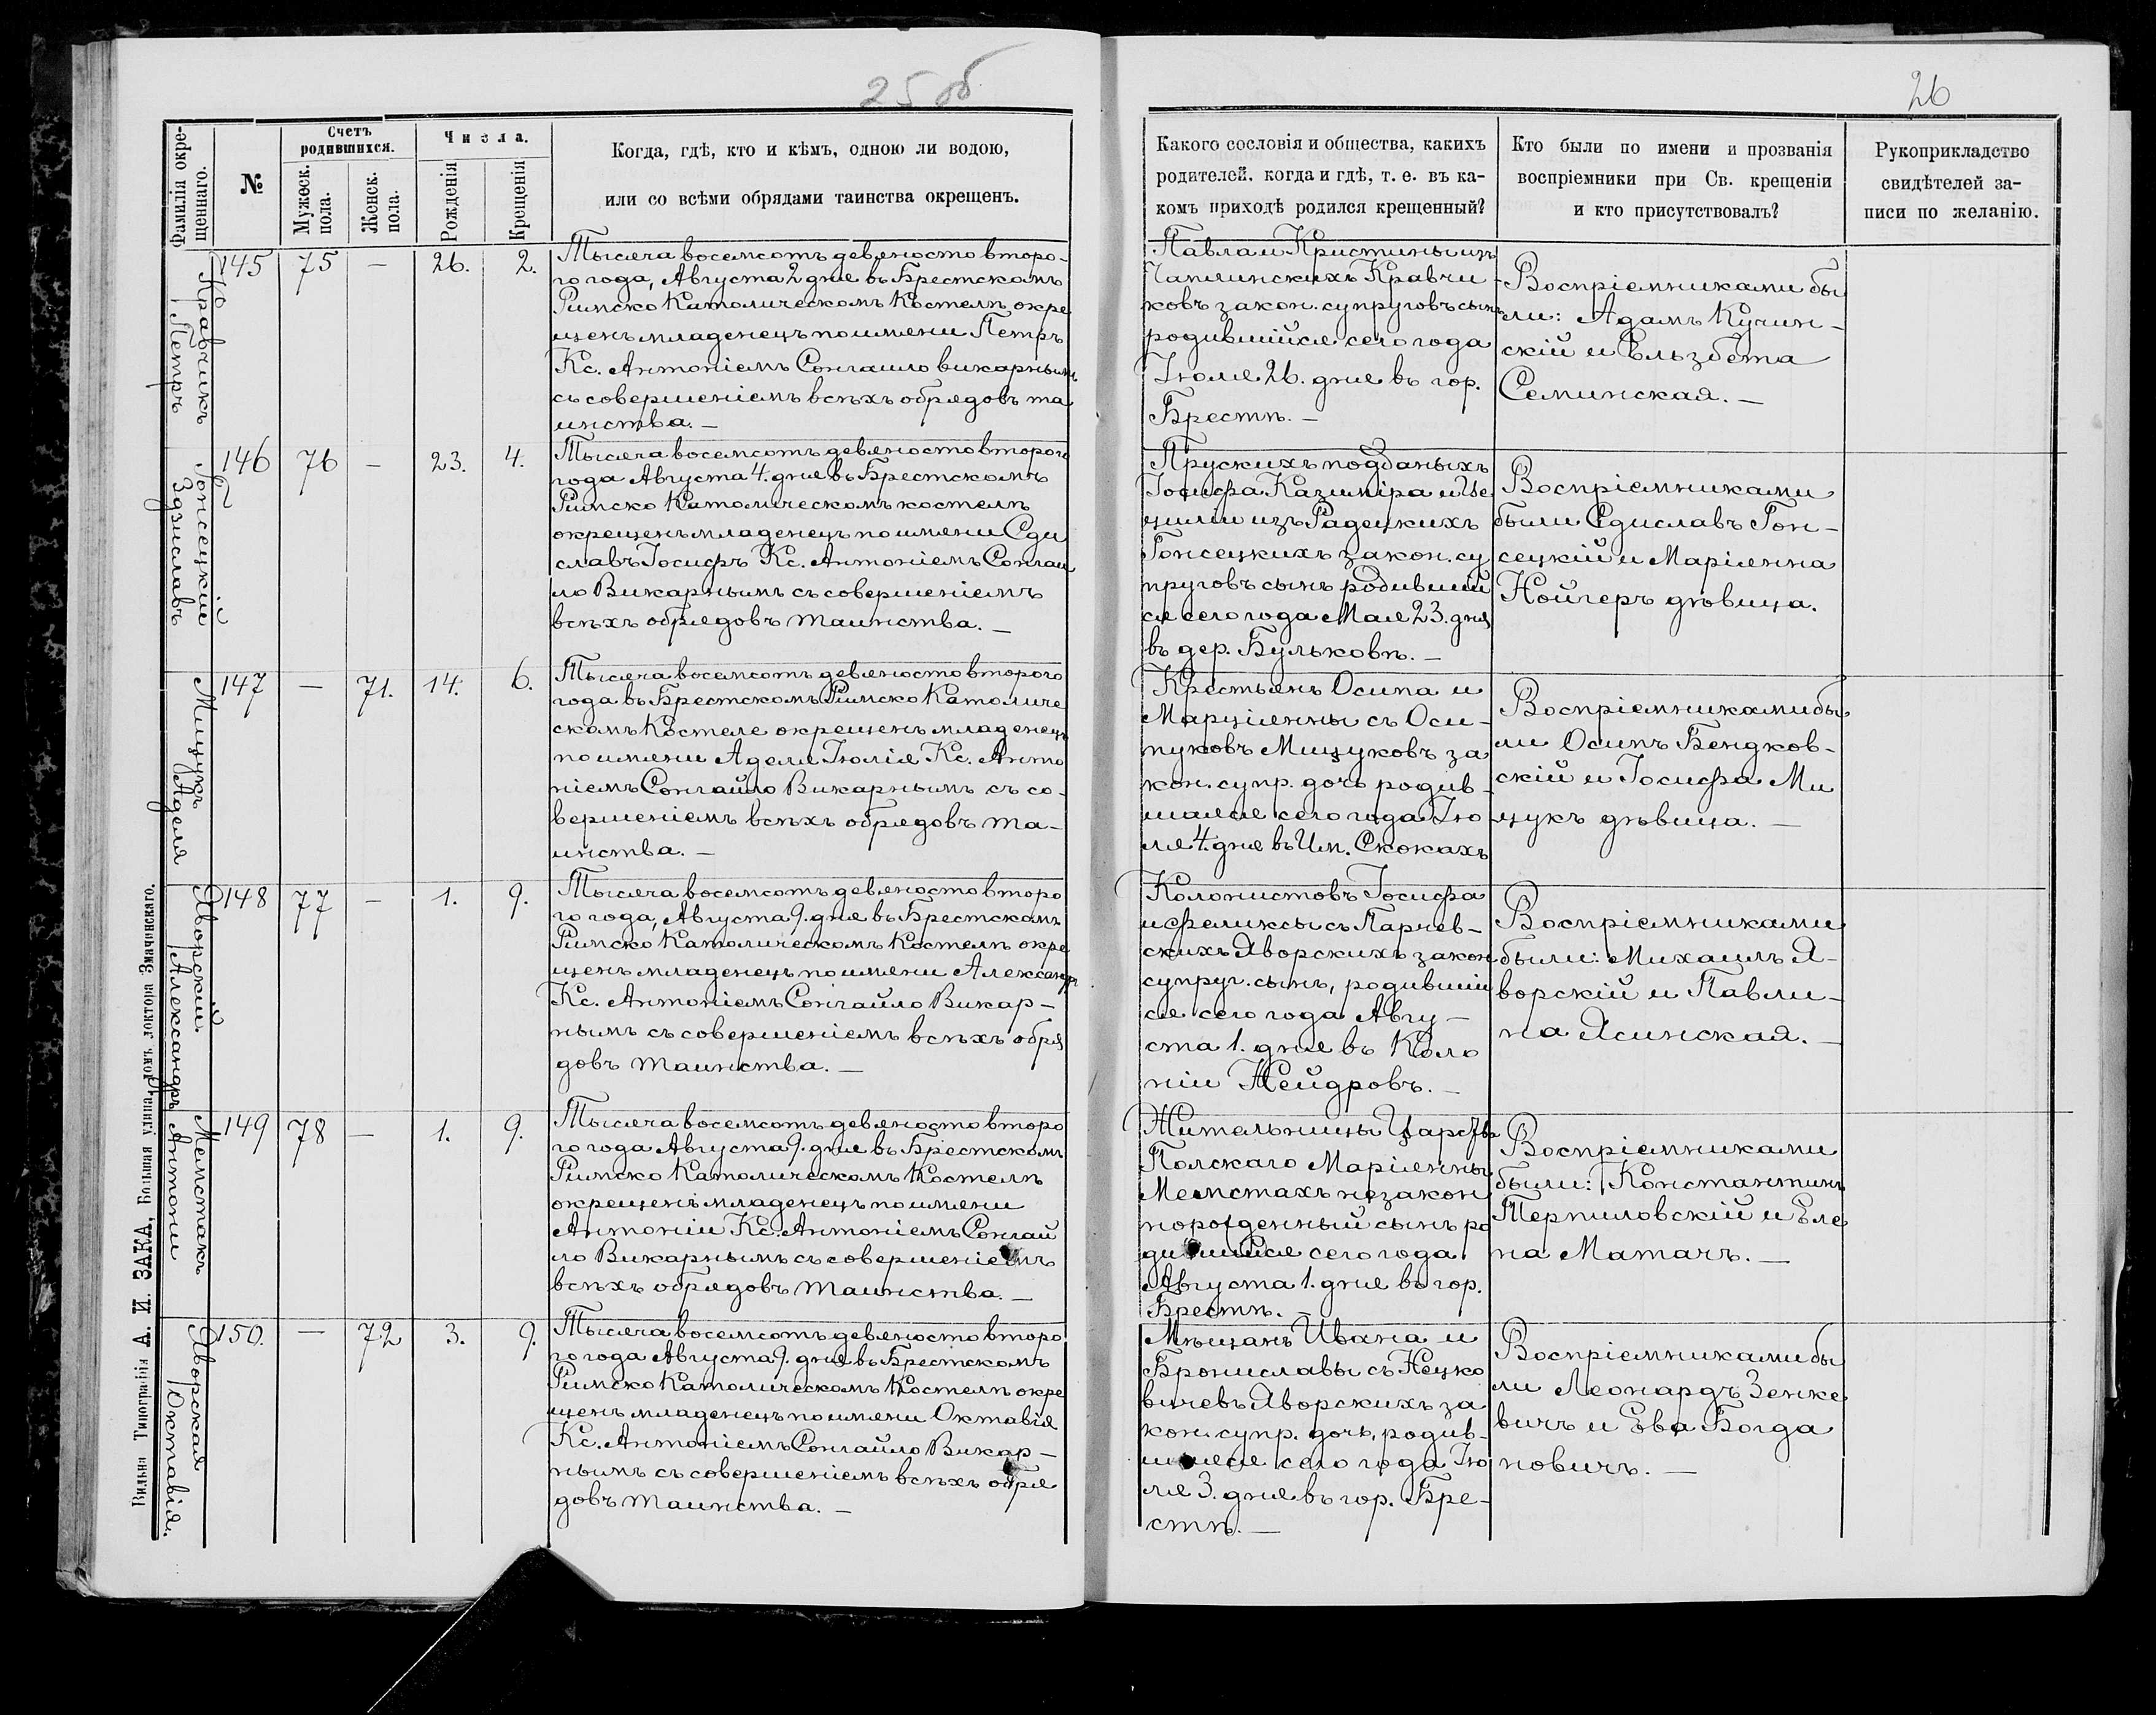 25 об
26
Фамилія окре-
щеннаго.
№
Счетъ
родившихся.
Мужеск.
пола.
Женск.
пола.
Числа.
Рожденія
Крещенія
Когда, гдѣ, кто и кѣмъ, одною ли водою,
или со всѣми обрядами таинства окрещенъ.
Какого сословія и общества, какихъ
родителей, когда и гдѣ, т. е. въ ка-
комъ приходѣ родился крещенный?
Кто были по имени и прозванія
воспріемники при Св. крещеніи
и кто присутствовалъ?
Рукоприкладство
свидѣтелей за-
писи по желанію.
Кравчикъ
Петръ
145 75 — 26. 2.
Тысяча восемсотъ девяносто второ-
го года, Августа 2 дня въ Брестскомъ
Римско Католическомъ Костелѣ окре
щенъ младенецъ по имени Петръ
Кс. Антоніемъ Сонгаило викарнымъ
съ совершеніемъ всѣхъ обрядовъ та
инства. —
Павла и Кристины изъ
Чаплинскихъ Кравчи-
ковъ закон. супруговъ сынъ
родившійся сего года
Іюля 26. дня въ гор.
Брестѣ. —
Воспріемниками бы
ли: Адамъ Кучин-
скій и Ельзбета
Семинская. —
Гонсецкій
Здзиславъ
146 76 — 23. 4.
Тысяча восемсотъ девяносто второго
года Августа 4. дня въ Брестскомъ
Римско Католическомъ костелѣ
окрещенъ младенецъ по имени Сди
славъ Іосифъ Кс. Антоніемъ Сонгаи
ло Викарнымъ съ совершеніемъ
всѣхъ обрядовъ таинства. —
Прускихъ подданыхъ
Іосифа Казиміра и Це
циліи изъ Радецкихъ
Гонсецкихъ закон. су
пруговъ сынъ родивший
ся сего года Мая 23. дня
въ дер. Бульковѣ. —
Воспріемниками
были Сдиславъ Гон-
сецкій и Маріянна
Нойгеръ дѣвица.
Мицукъ
Аделя
147 — 71. 14. 6.
Тысяча восемсотъ девяносто второго
года въ Брестскомъ Римско Католиче
скомъ Костеле окрещенъ младенецъ
по имени Аделя Юлія Кс. Анто
ніемъ Сонгайло Викарнымъ съ со-
вершеніемъ всѣхъ обрядовъ та-
инства. —
Крестьянъ Осипа и
Марціянны съ Оси-
пуковъ Мицуковъ за
кон. супр. дочь родив-
шаяся сего года Ію
ля 4. дня въ Им. Скокахъ
Воспріемниками бы
ли Осипъ Бендков-
скій и Іосифа Ми
цукъ дѣвица. —
Яворскій
Александръ
148 77 — 1. 9.
Тысяча восемсотъ девяносто второ
го года, Августа 9. дня въ Брестскомъ
Римско Католическомъ Костелѣ окре
щенъ младенецъ по имени Александръ
Кс. Антоніемъ Сонгайло Викар-
нымъ съ совершеніемъ всѣхъ обря
довъ таинства. —
Колонистовъ Іосифа
и Феликсы съ Парчев-
скихъ Яворскихъ закон
супруг. сынъ, родивший
ся сего года Авгу-
ста 1. дня въ Коло
ніи Нейдровъ. —
Воспріемниками
были: Михаилъ Я-
ворскій и Павли-
на Ясинская. —
Мемстахъ
Антони
149 78 — 1. 9.
Тысяча восемсотъ девяносто второ
го года Августа 9. дня въ Брестскомъ
Римско Католическомъ Костелѣ
окрещенъ младенецъ по имени
Антоніи Кс. Антоніемъ Сонгай
ло Викарнымъ съ совершеніемъ
всѣхъ обрядовъ таинства. —
Жительницы Царства
Полскаго Маріянны
Мемстахъ незакон
норожденный сынъ ро
дившійся сего года
Августа 1. дня въ гор.
Брестѣ. —
Воспріемниками
были: Константинъ
Терпиловскій и Еле
на Матачъ. —
Яворская
Октавія.
150. — 72 3. 9.
Тысяча восемсотъ девяносто второ
го года Августа 9. дня въ Брестскомъ
Римско Католическомъ Костелѣ окре
щенъ младенецъ по имени Октавія
Кс. Антоніемъ Сонгайло Викар-
нымъ съ совершеніемъ всѣхъ обря
довъ таинства. —
Мѣщанъ Ивана и
Брониславы съ Нецко
вичевъ Яворскихъ за
кон. супр. дочь, родив-
шаяся сего года Ію
ля 3. дня въ гор. Бре-
стѣ. —
Воспріемниками бы
ли Леонардъ Зенке
вичъ и Ева Богда
новичъ. —
Вильна Типографія А. И. ЗАКА, Большая улица, домъ доктора Змачинскаго.